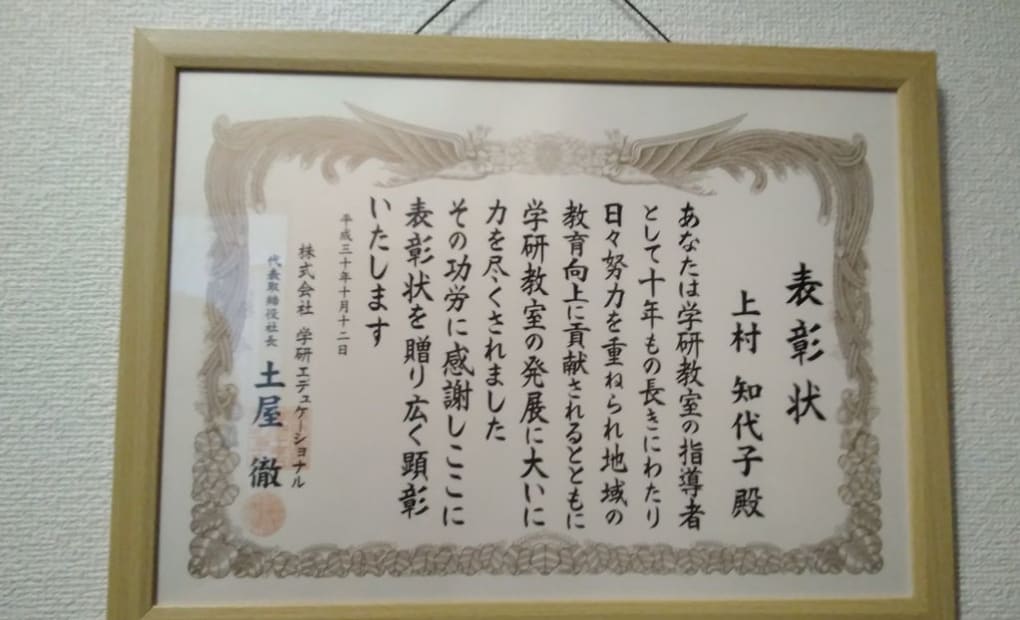 表彰状
上村 知代子 殿
あなたは学研教室の指導者
として十年もの長きにわたり
日々努力を重ねられ地域の
教育向上に貢献されるとともに
学研教室の発展に大いに
力を尽くされました
その功労に感謝しここに
表彰状を贈り広く顕彰
いたします
平成三十年十月十二日
株式会社 学研エデュケーショナル
代表取締役社長 土屋 徹